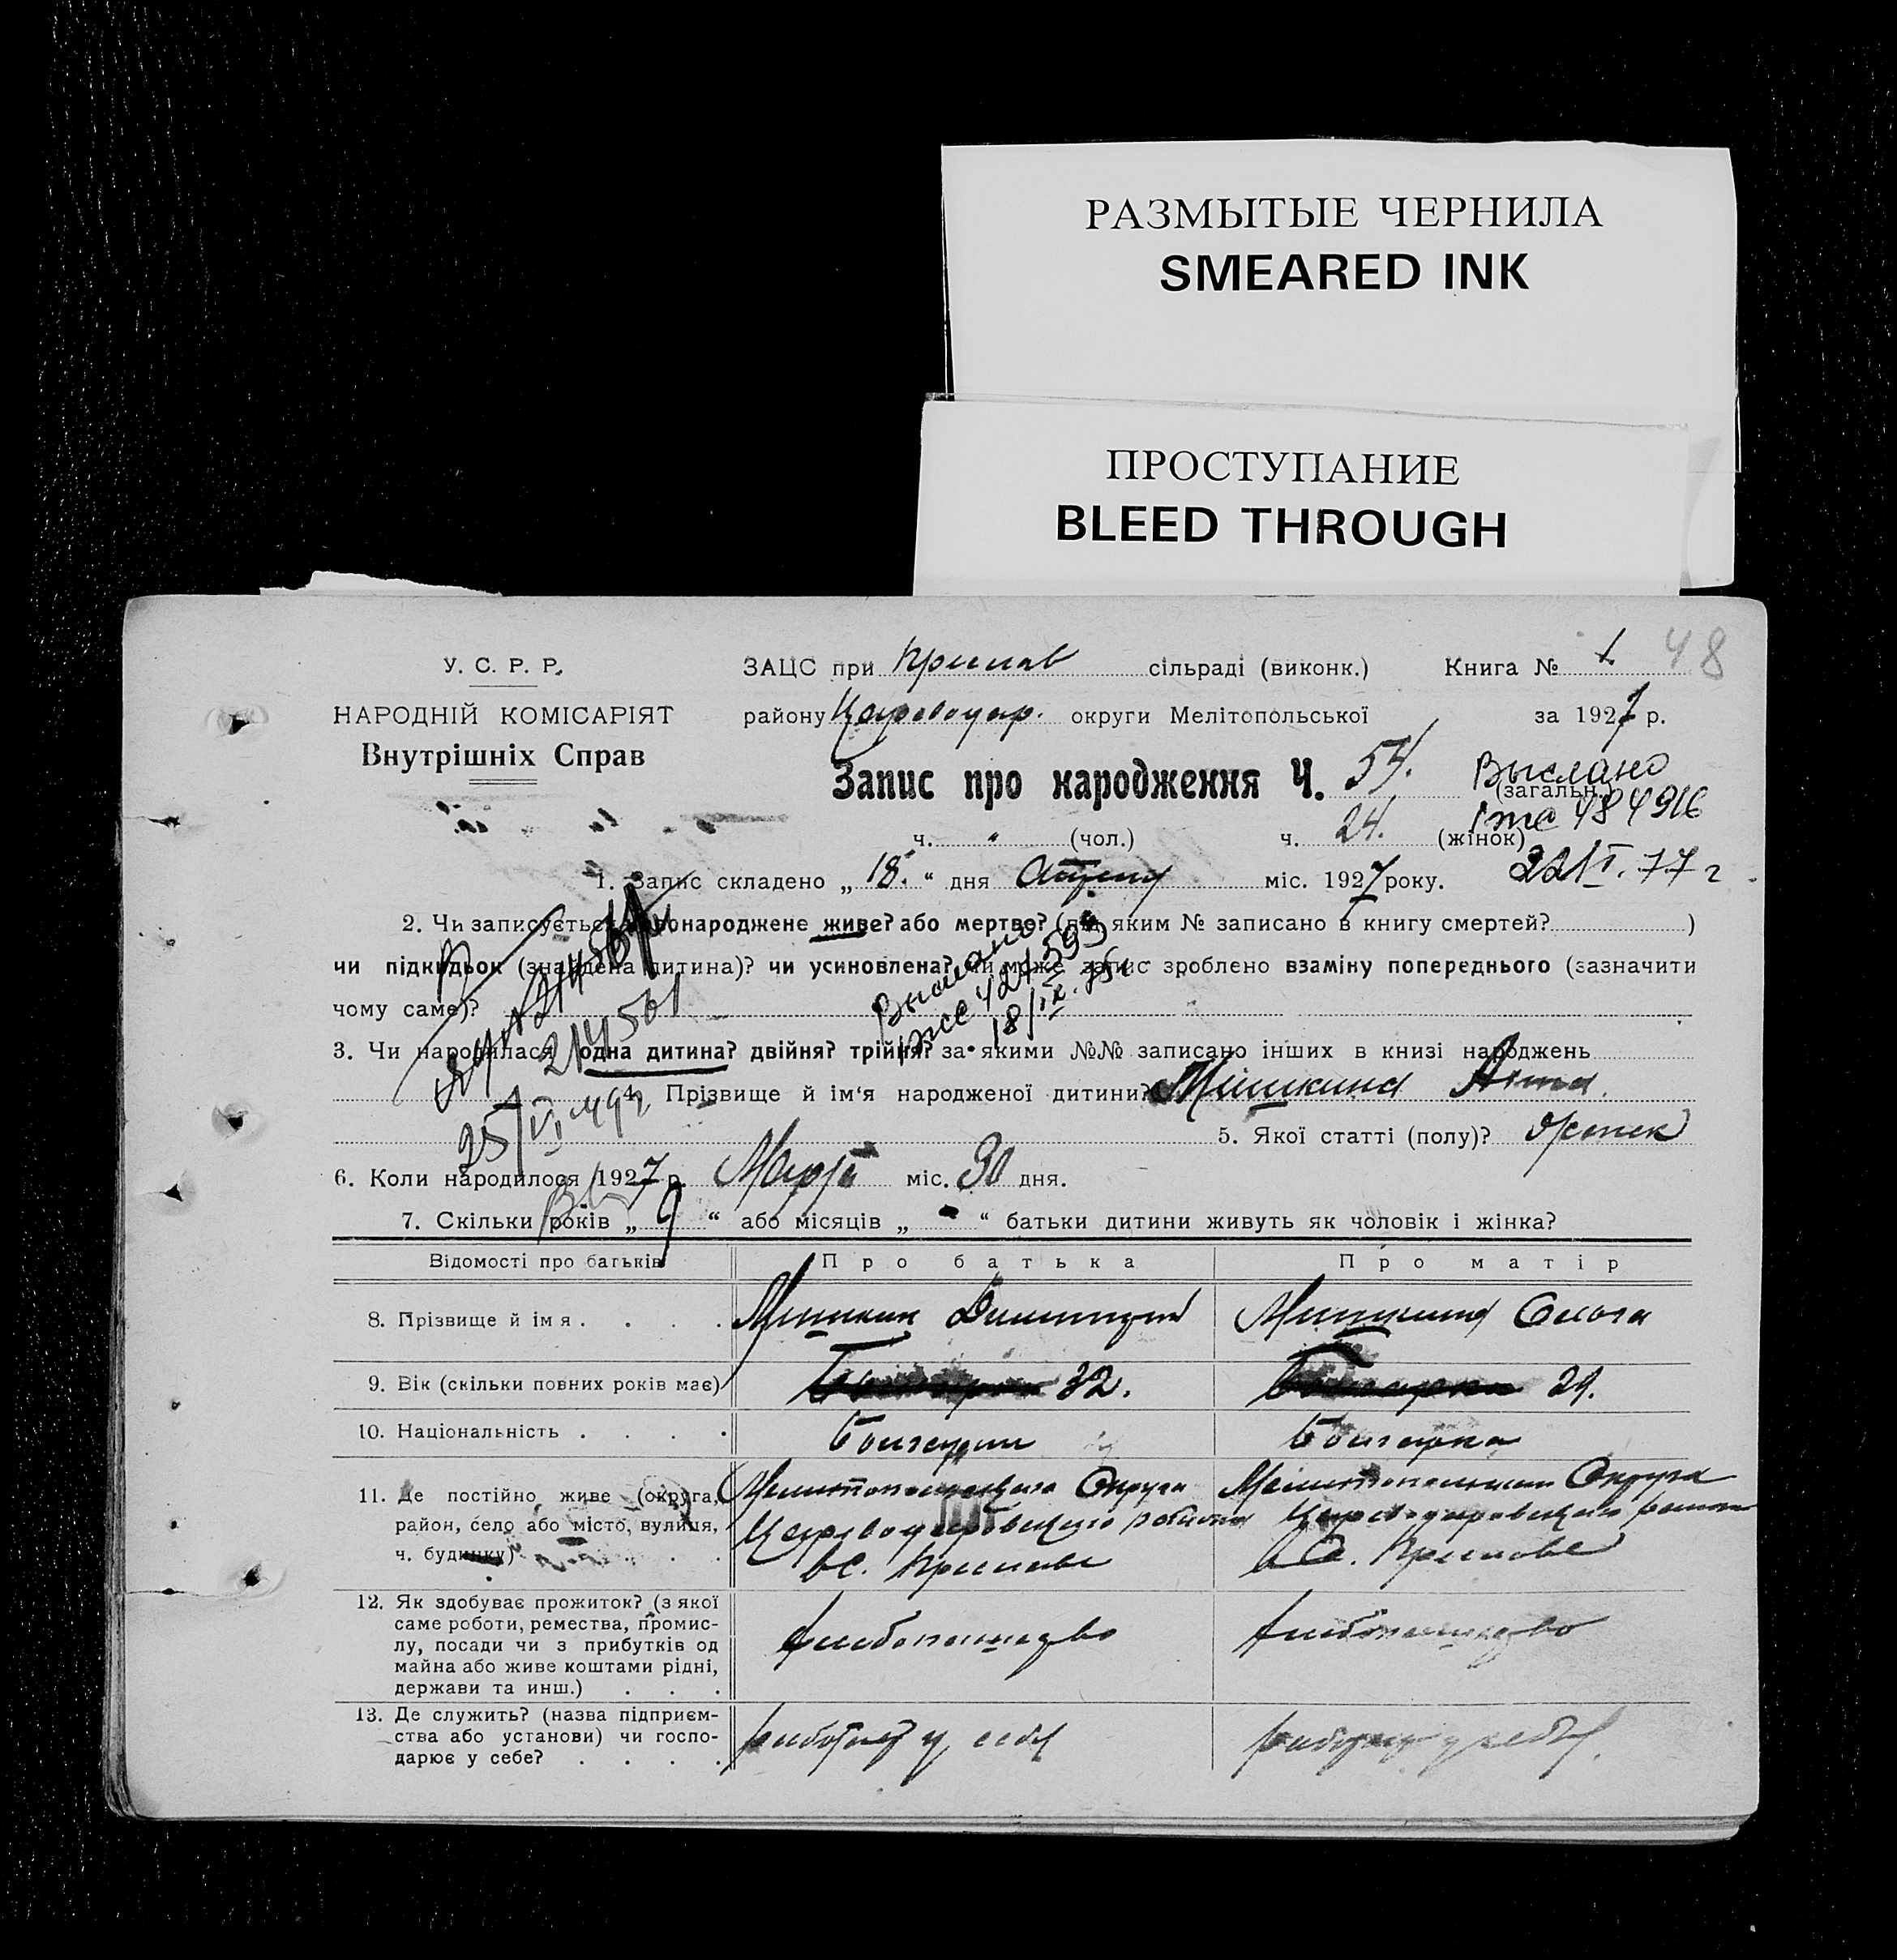 РАЗМЫТЫЕ ЧЕРНИЛА
SMEARED INK
ПРОСТУПАНИЕ
BLEED THROUGH
У. С. Р. Р.
НАРОДНІЙ КОМІСАРІЯТ
Внутрішніх Справ
ЗАЦС при сільраді (виконк.) Книга № 1. 48
району Цареводар. округи Мелітопольської за 1927 р.
Запис про народження Ч. 54. (загальн.)
Выслано
184916
ч. „ (чол.) ч. 24. (жінок)
22/I. 77 г
1. Запис складено „ 18. “ дня міс. 1927 року.
2. Чи записується новонароджене живе? або мертве? (під яким № записано в книгу смертей? )
чи підкидьок (знайдена дитина)? чи усиновлена? чи може запис зроблено взаміну попереднього (зазначити
чому саме)?
214501
25/VI 49 г
18/IX.
3. Чи народилася одна дитина? двійня? трійня? за якими №№ записано інших в книзі народжень
4. Прізвище й ім‘я народженої дитини? Мишкина Анна.
5. Якої статті (полу)? женск
6. Коли народилося 1927 р. Марта міс. 30 дня.
7. Скільки років „ 9 “ або місяців „ - “ батьки дитини живуть як чоловік і жінка?
Відомості про батьків Про батька Про матір
8. Прізвище й імя . . . . Мишкин Димитрий Мишкина Ольга
9. Вік (скільки повних років має) 32. 29.
10. Національність . . . . Болгарин Болгарка
11. Де постійно живе (округа, район, село або місто, вулиця, ч. будинку) . . . .
Мелитопольского Округа Мелитопольскаго Округа
Цареводаровского района Цареводаровского района
12. Як здобуває прожиток? (з якої
саме роботи, ремества, промис-
лу, посади чи з прибутків од
майна або живе коштами рідні,
держави та инш.) . . .
хлебопашество хлебопашество
13. Де служить? (назва підприєм-
ства або установи) чи госпо-
дарює у себе? . . . .
работает у себя работает у себя.